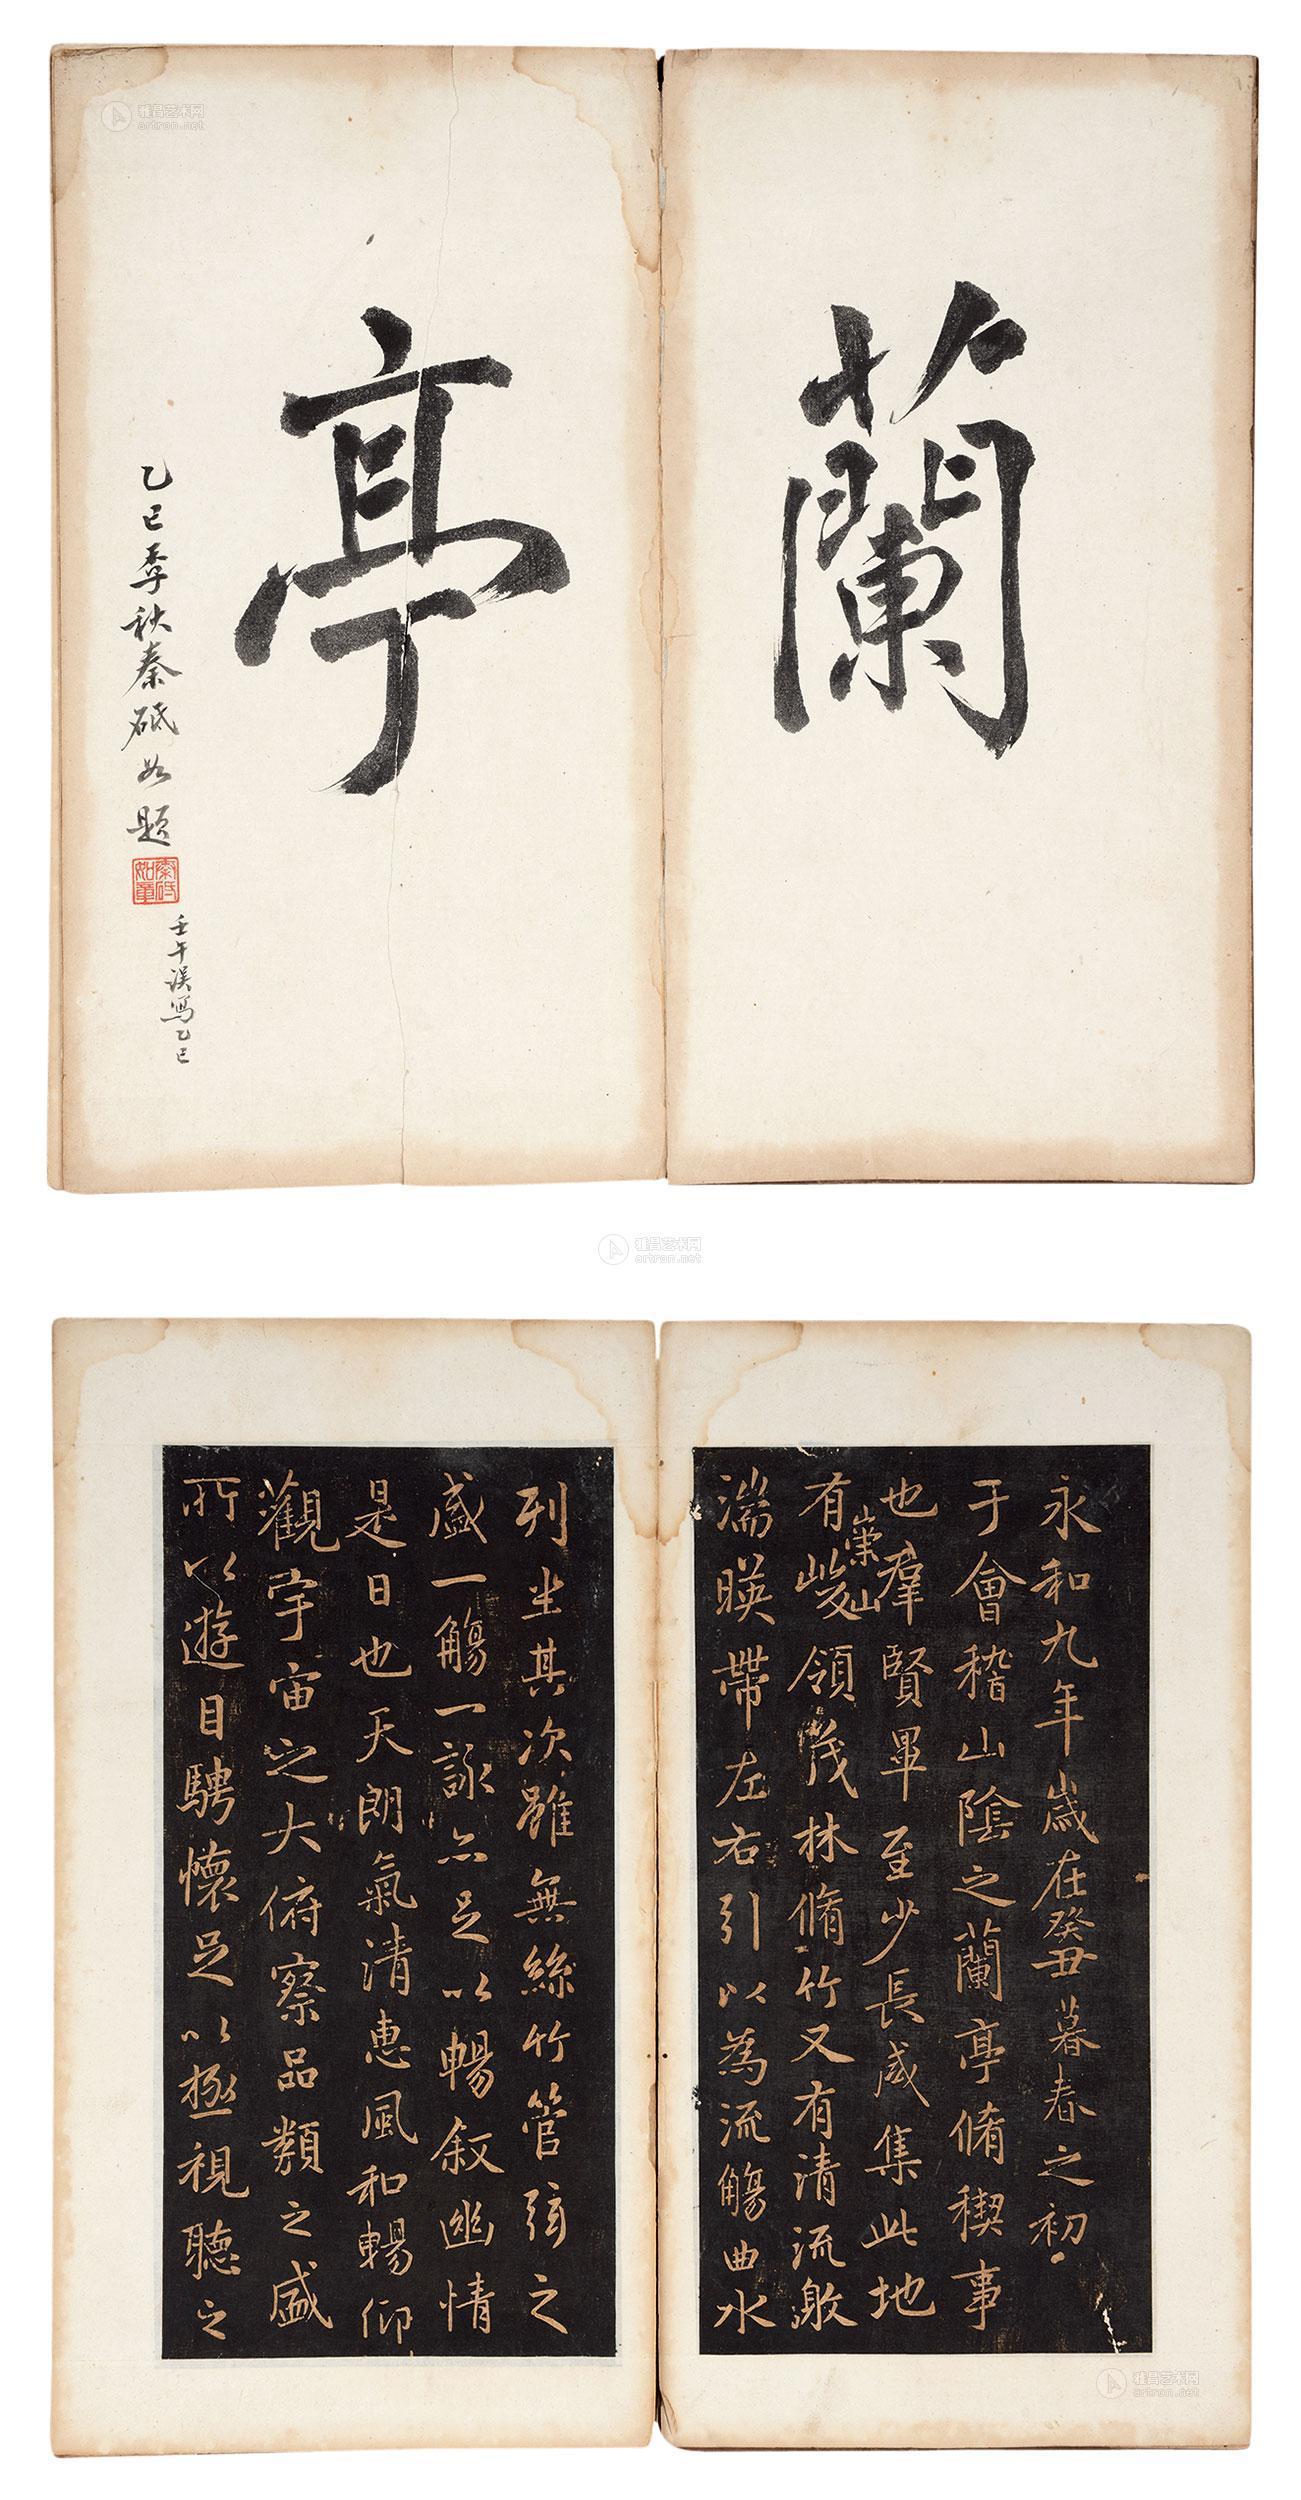 蘭
亭
乙巳季秋秦砥如題
秦砥如章
壬午误寫乙巳
永和九年歲在癸丑暮春之初
于會稽山陰之蘭亭脩稧事
也羣賢畢至少長咸集此地
有崇山峻領茂林脩竹又有清流激
湍暎帶左右引以為流觴曲水
列坐其次雖無絲竹管弦之
盛一觴一詠亦足以暢敘幽情
是日也天朗氣清惠風和暢仰
觀宇宙之大俯察品類之盛
所以遊目騁懷足以極視聽之
雅昌艺术网
artron.net
雅昌艺术网
artron.net
雅昌艺术网
artron.net